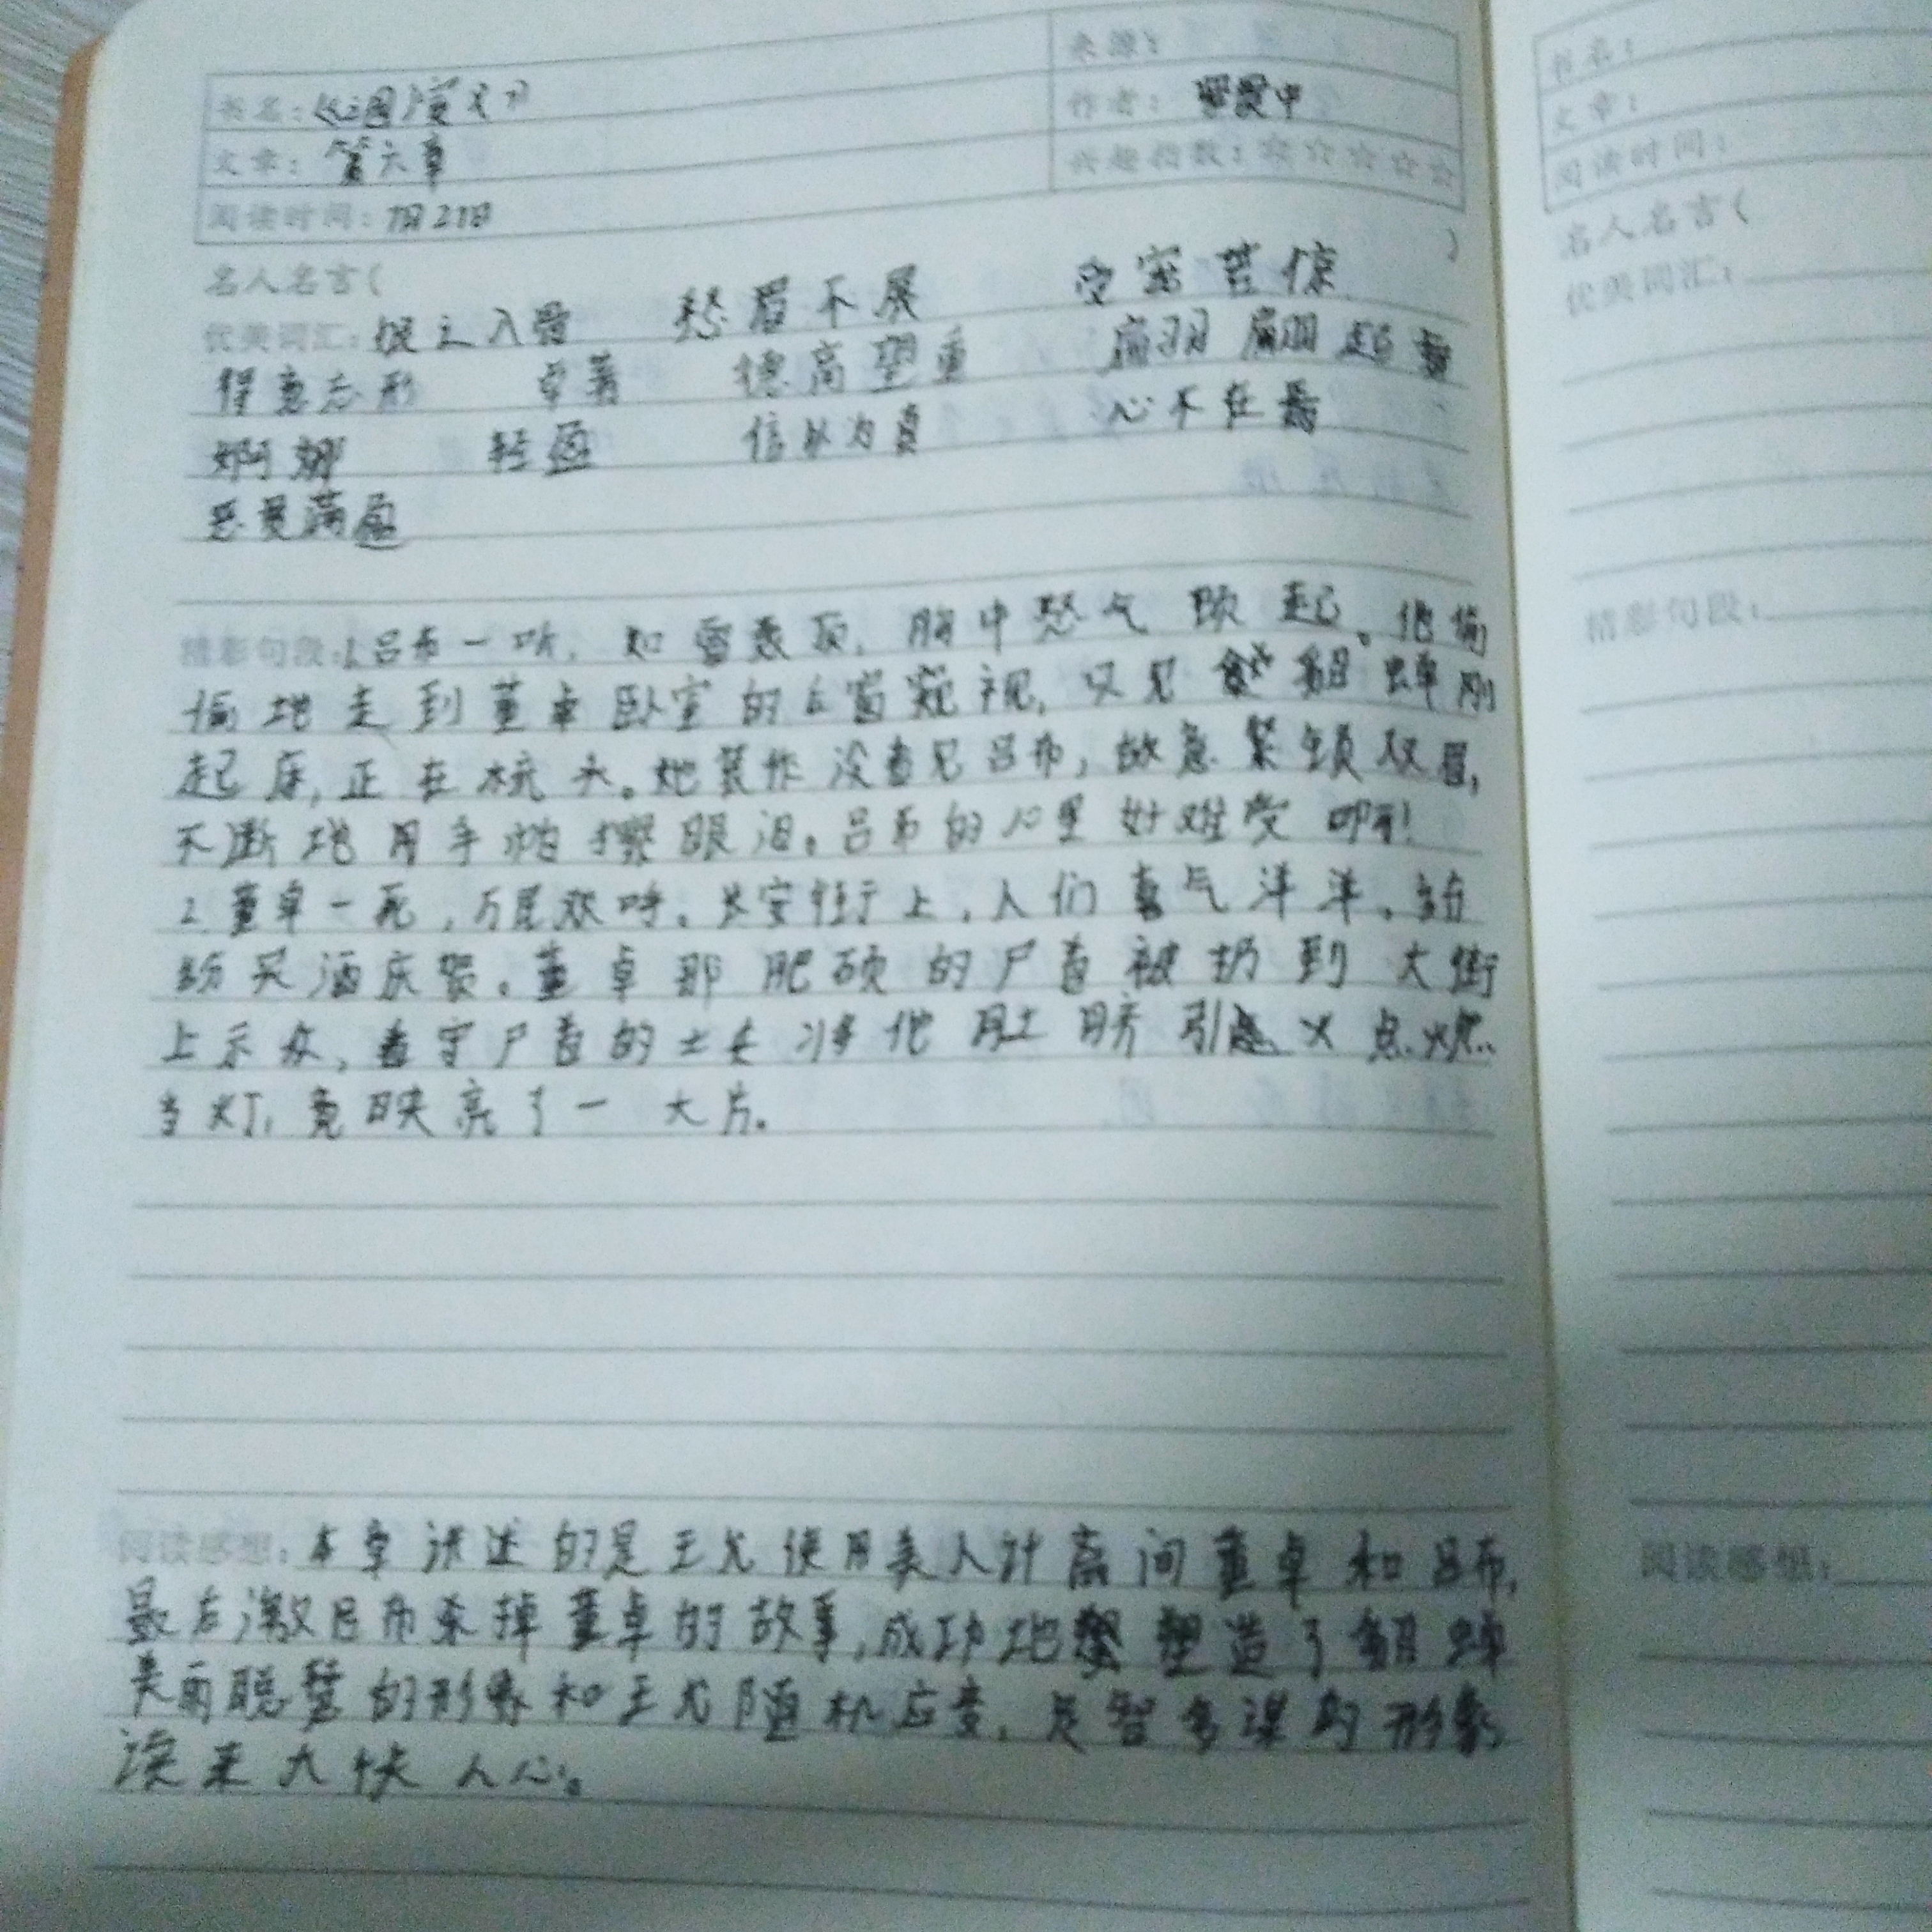 书名：《三国演义》
来源：
作者：罗贯中
文章：第六章
兴趣指数：☆☆☆☆☆
阅读时间：7月21日
名人名言（ ）
优美词汇：恨之入骨 愁眉不展 受宠若惊
得意忘形 卓著 德高望重 翩翩起舞
婀娜 轻盈 信以为真 心不在焉
恶贯满盈
精彩句段：1.吕布一听，如雷轰顶，胸中怒气顿起。他偷
偷地走到董卓卧室的后窗窥视，只见貂蝉刚
起床，正在梳头。她装作没看见吕布，故意紧锁双眉，
不断地用手帕擦眼泪。吕布的心里好难受啊！
2.董卓一死，万民欢呼。长安街上，人们喜气洋洋。
纷买酒庆贺。董卓那肥硕的尸首被扔到大街
上示众，看守尸首的士兵将他肚脐引火点燃
当灯，竟映亮了一大片。
阅读感想：本章讲述的是王允使用美人计离间董卓和吕布，
最后激吕布杀掉董卓的故事，成功地塑造了貂蝉
美丽聪慧的形象和王允随机应变，足智多谋的形象
读来大快人心。
书名：
文章：
阅读时间：
名人名言（
优美词汇：
精彩句段：
阅读感想：